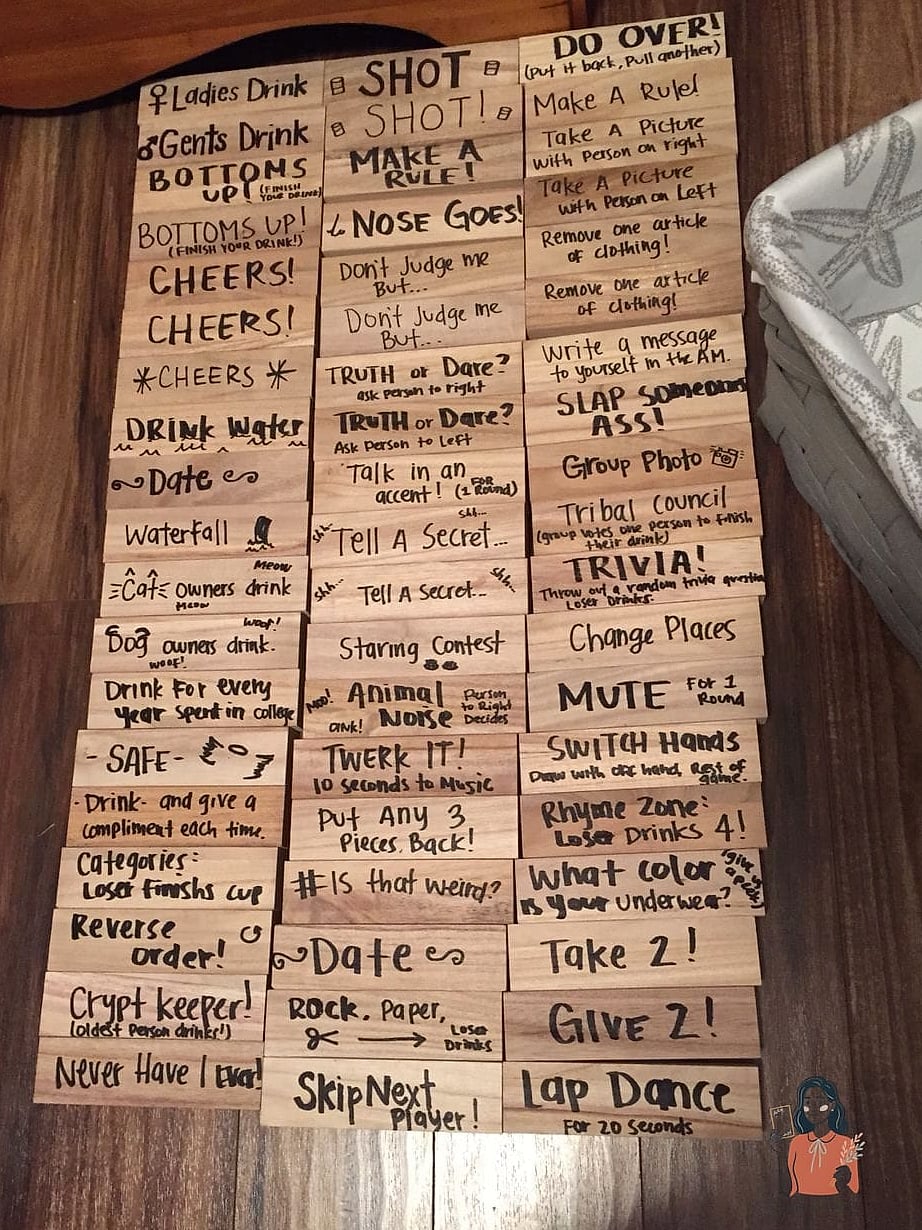 ♀Ladies Drink
♂Gents Drink
BOTTOMS
UP! (FINISH
YOUR DRINK!)
BOTTOMS UP!
(FINISH YOUR DRINK!)
CHEERS!
CHEERS!
CHEERS
DRINK Water
Date
Waterfall
Meow
Cat owners drink
Meow
Woof!
Dog owners drink.
Woof!
Drink For every
year spent in college
-SAFE-
-Drink- and give a
compliment each time.
Categories:
Loser finishs cup
Reverse
order!
Crypt keeper!
(oldest Person drinks!)
Never Have I Ever!
SHOT
SHOT!
MAKE A
RULE!
NOSE GOES!
Don't Judge me
But...
Don't Judge me
But...
TRUTH or Dare?
ask person to right
TRUTH or Dare?
Ask Person to Left
Talk in an
accent! (FOR 1 Round)
shh...
shh... Tell A Secret...
shh... Tell A Secret... shh...
Staring Contest
moo! Animal Person
to Right
oink! Noise Decides
TWERK IT!
10 seconds to Music
Put Any 3
Pieces Back!
#Is that weird?
Date
Rock, Paper,
Loser
Drinks
Skip Next
Player!
DO OVER!
(Put it back, Pull another)
Make A Rule!
Take A Picture
with Person on right
Take A Picture
with Person on Left
Remove one article
of clothing!
Remove one article
of clothing!
Write a message
to yourself in the AM.
SLAP Someones
ASS!
Group Photo
Tribal Council
(group votes one person to finish
their drink)
TRIVIA!
Throw out a random trivia question
Loser Drinks.
Change Places
MUTE For 1
Round
SWITCH Hands
Draw with off hand, Rest of
game.
Rhyme Zone:
Loser Drinks 4!
What color
is your underwear?
Take 2!
GIVE 2!
Lap Dance
For 20 Seconds